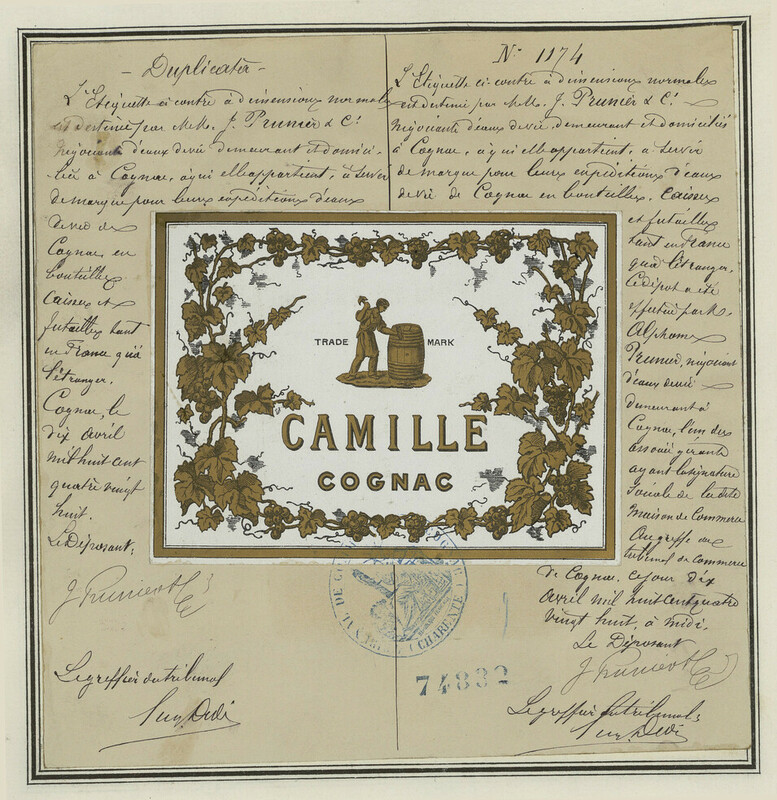 - Duplicata -
L'Etiquette ci-contre à dimensions normales
est destinée par M.M. J. Prunier & Cie
négociants d'eaux de vie demeurant et domici-
liés à Cognac, à qui elle appartient, à servir
de marque pour leurs expéditions d'eaux
de vie de
Cognac, en
bouteilles
caisses et
futailles tant
en France qu'à
l'étranger.
Cognac, le
dix avril
mil huit cent
quatre vingt
huit.
Le Déposant,
J. Prunier & Cie
Le greffier du tribunal
No 1174
L'Etiquette ci-contre à dimensions normales
est destinée par M.M. J. Prunier & Cie
négociants d'eaux de vie, demeurant et domiciliés
à Cognac, à qui elle appartient, à servir
de marque pour leurs expéditions d'eaux
de vie de Cognac en bouteilles, caisses
et futailles
tant en France
qu'à l'étranger.
Ce dépôt a été
effectué par M.
Alphonse
Prunier, négociant
d'eaux de vie
demeurant à
Cognac, l'un des
associés gérants
ayant la signature
sociale de la dite
maison de commerce
Au greffe du
tribunal de commerce
de Cognac, ce jour dix
avril mil huit cent quatre
vingt huit, à midi.
Le Déposant
J. Prunier & Cie
Le greffier du tribunal
TRADE MARK
CAMILLE
COGNAC
CHARENTE
74832